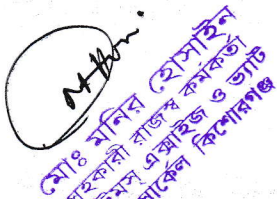 মোঃ মনির হোসাইন
সহকারী রাজস্ব কর্মকর্তা
কাস্টমস এক্সাইজ ও ভ্যাট
সার্কেল কিশোরগঞ্জ